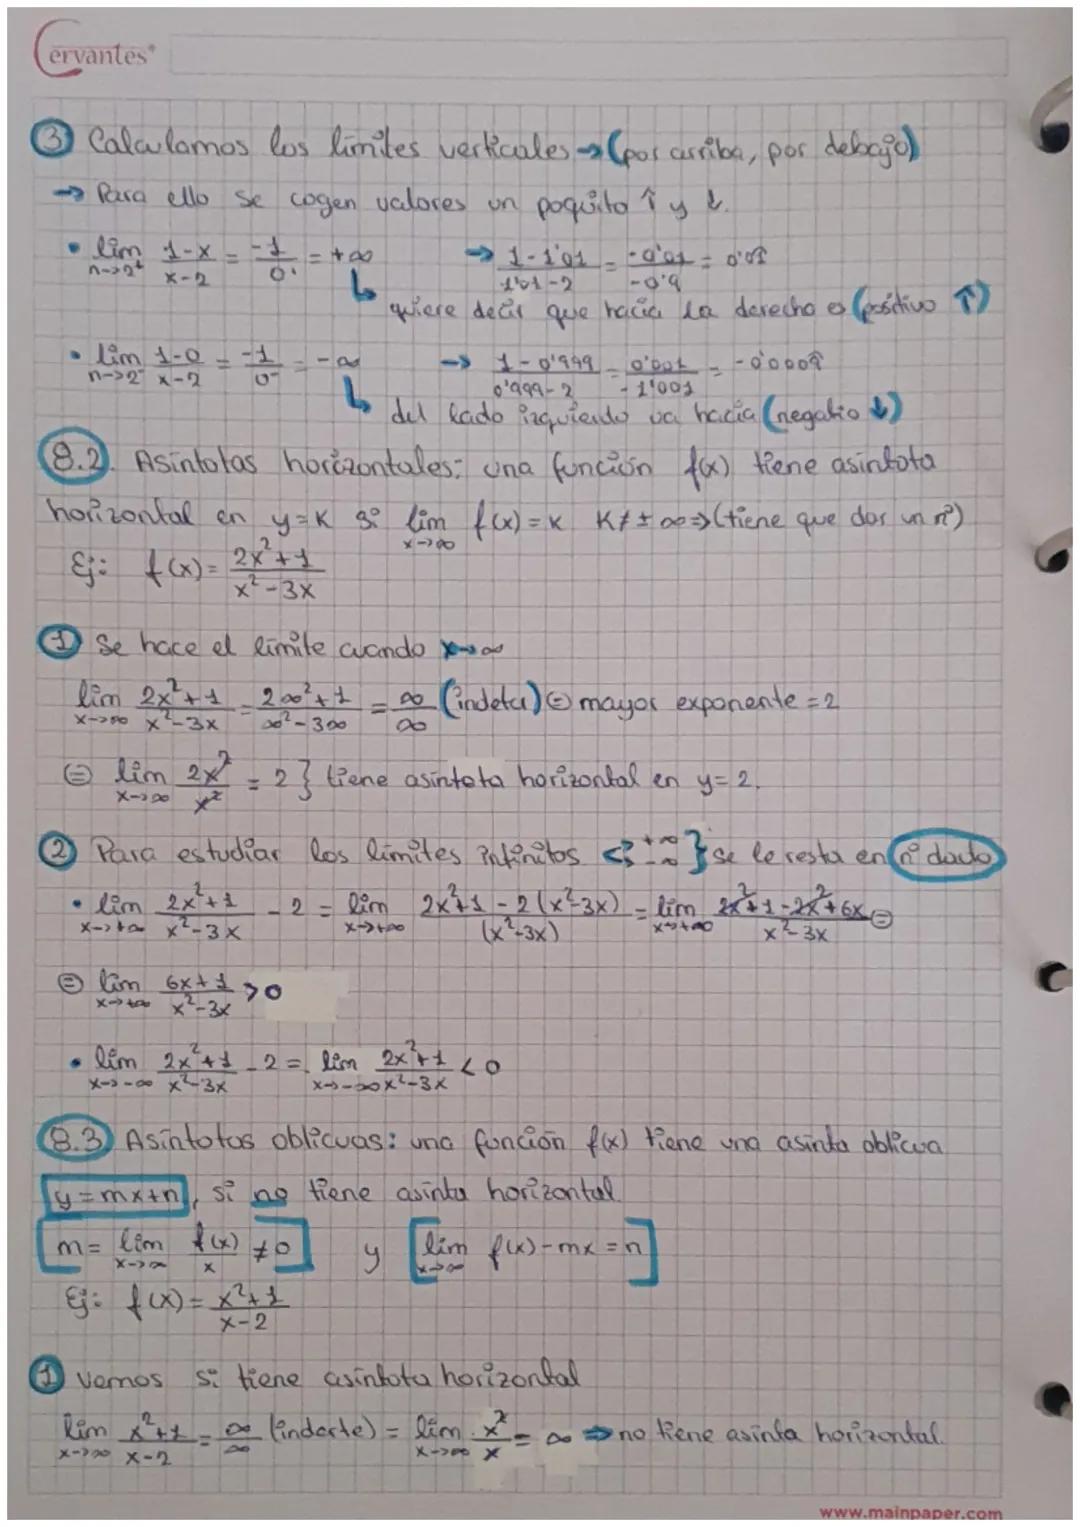 Cervantes®
③ Calculamos los límites verticales → (por arriba, por debajo)
→ Para ello se cogen valores un poquito ↑ y ↓.
• lim n->2⁺ 1-x/x-2 = -1/0⁺ = +∞ → 1-1'01/1'01-2 = -0'01/-0'9 = 0'01
quiere decir que hacia la derecha es (positivo ↑)
• lim n->2⁻ 1-0/x-2 = -1/0⁻ = -∞ → 1-0'999/0'999-2 = 0'001/-1'001 = -0'0009
del lado izquierdo va hacia (negatio ↓)
8.2. Asíntotas horizontales: una función f(x) tiene asíntota
horizontal en y=K si lim x->∞ f(x)=K K≠±∞ => (tiene que dar un nº)
Ej: f(x) = 2x²+1/x²-3x
① Se hace el límite cuando x->∞
lim x->∞ 2x²+1/x²-3x = 2∞²+1/∞²-3∞ = ∞/∞ (indeter) ⊜ mayor exponente = 2
⊜ lim x->∞ 2x²/x² = 2 } tiene asíntota horizontal en y=2.
② Para estudiar los límites infinitos < +∞ -∞ } se le resta en nº dado
• lim x->+∞ 2x²+1/x²-3x - 2 = lim x->+∞ 2x²+1-2(x²-3x)/(x²-3x) = lim x->+∞ 2x²+1-2x²+6x/x²-3x ⊜
⊜ lim x->+∞ 6x+1/x²-3x > 0
• lim x->-∞ 2x²+1/x²-3x - 2 = lim x->-∞ 2x²+1/x²-3x < 0
8.3 Asíntotas oblicuas: una función f(x) tiene una asinta oblicua
y=mx+n, si no tiene asinta horizontal.
[m = lim x->∞ f(x)/x ≠ 0] y [lim x->∞ f(x)-mx = n]
Ej: f(x) = x²+1/x-2
① Vemos si tiene asíntota horizontal
lim x->∞ x²+1/x-2 = ∞/∞ (inderte) = lim x->∞ x²/x = ∞ => no tiene asinta horizontal.
www.mainpaper.com